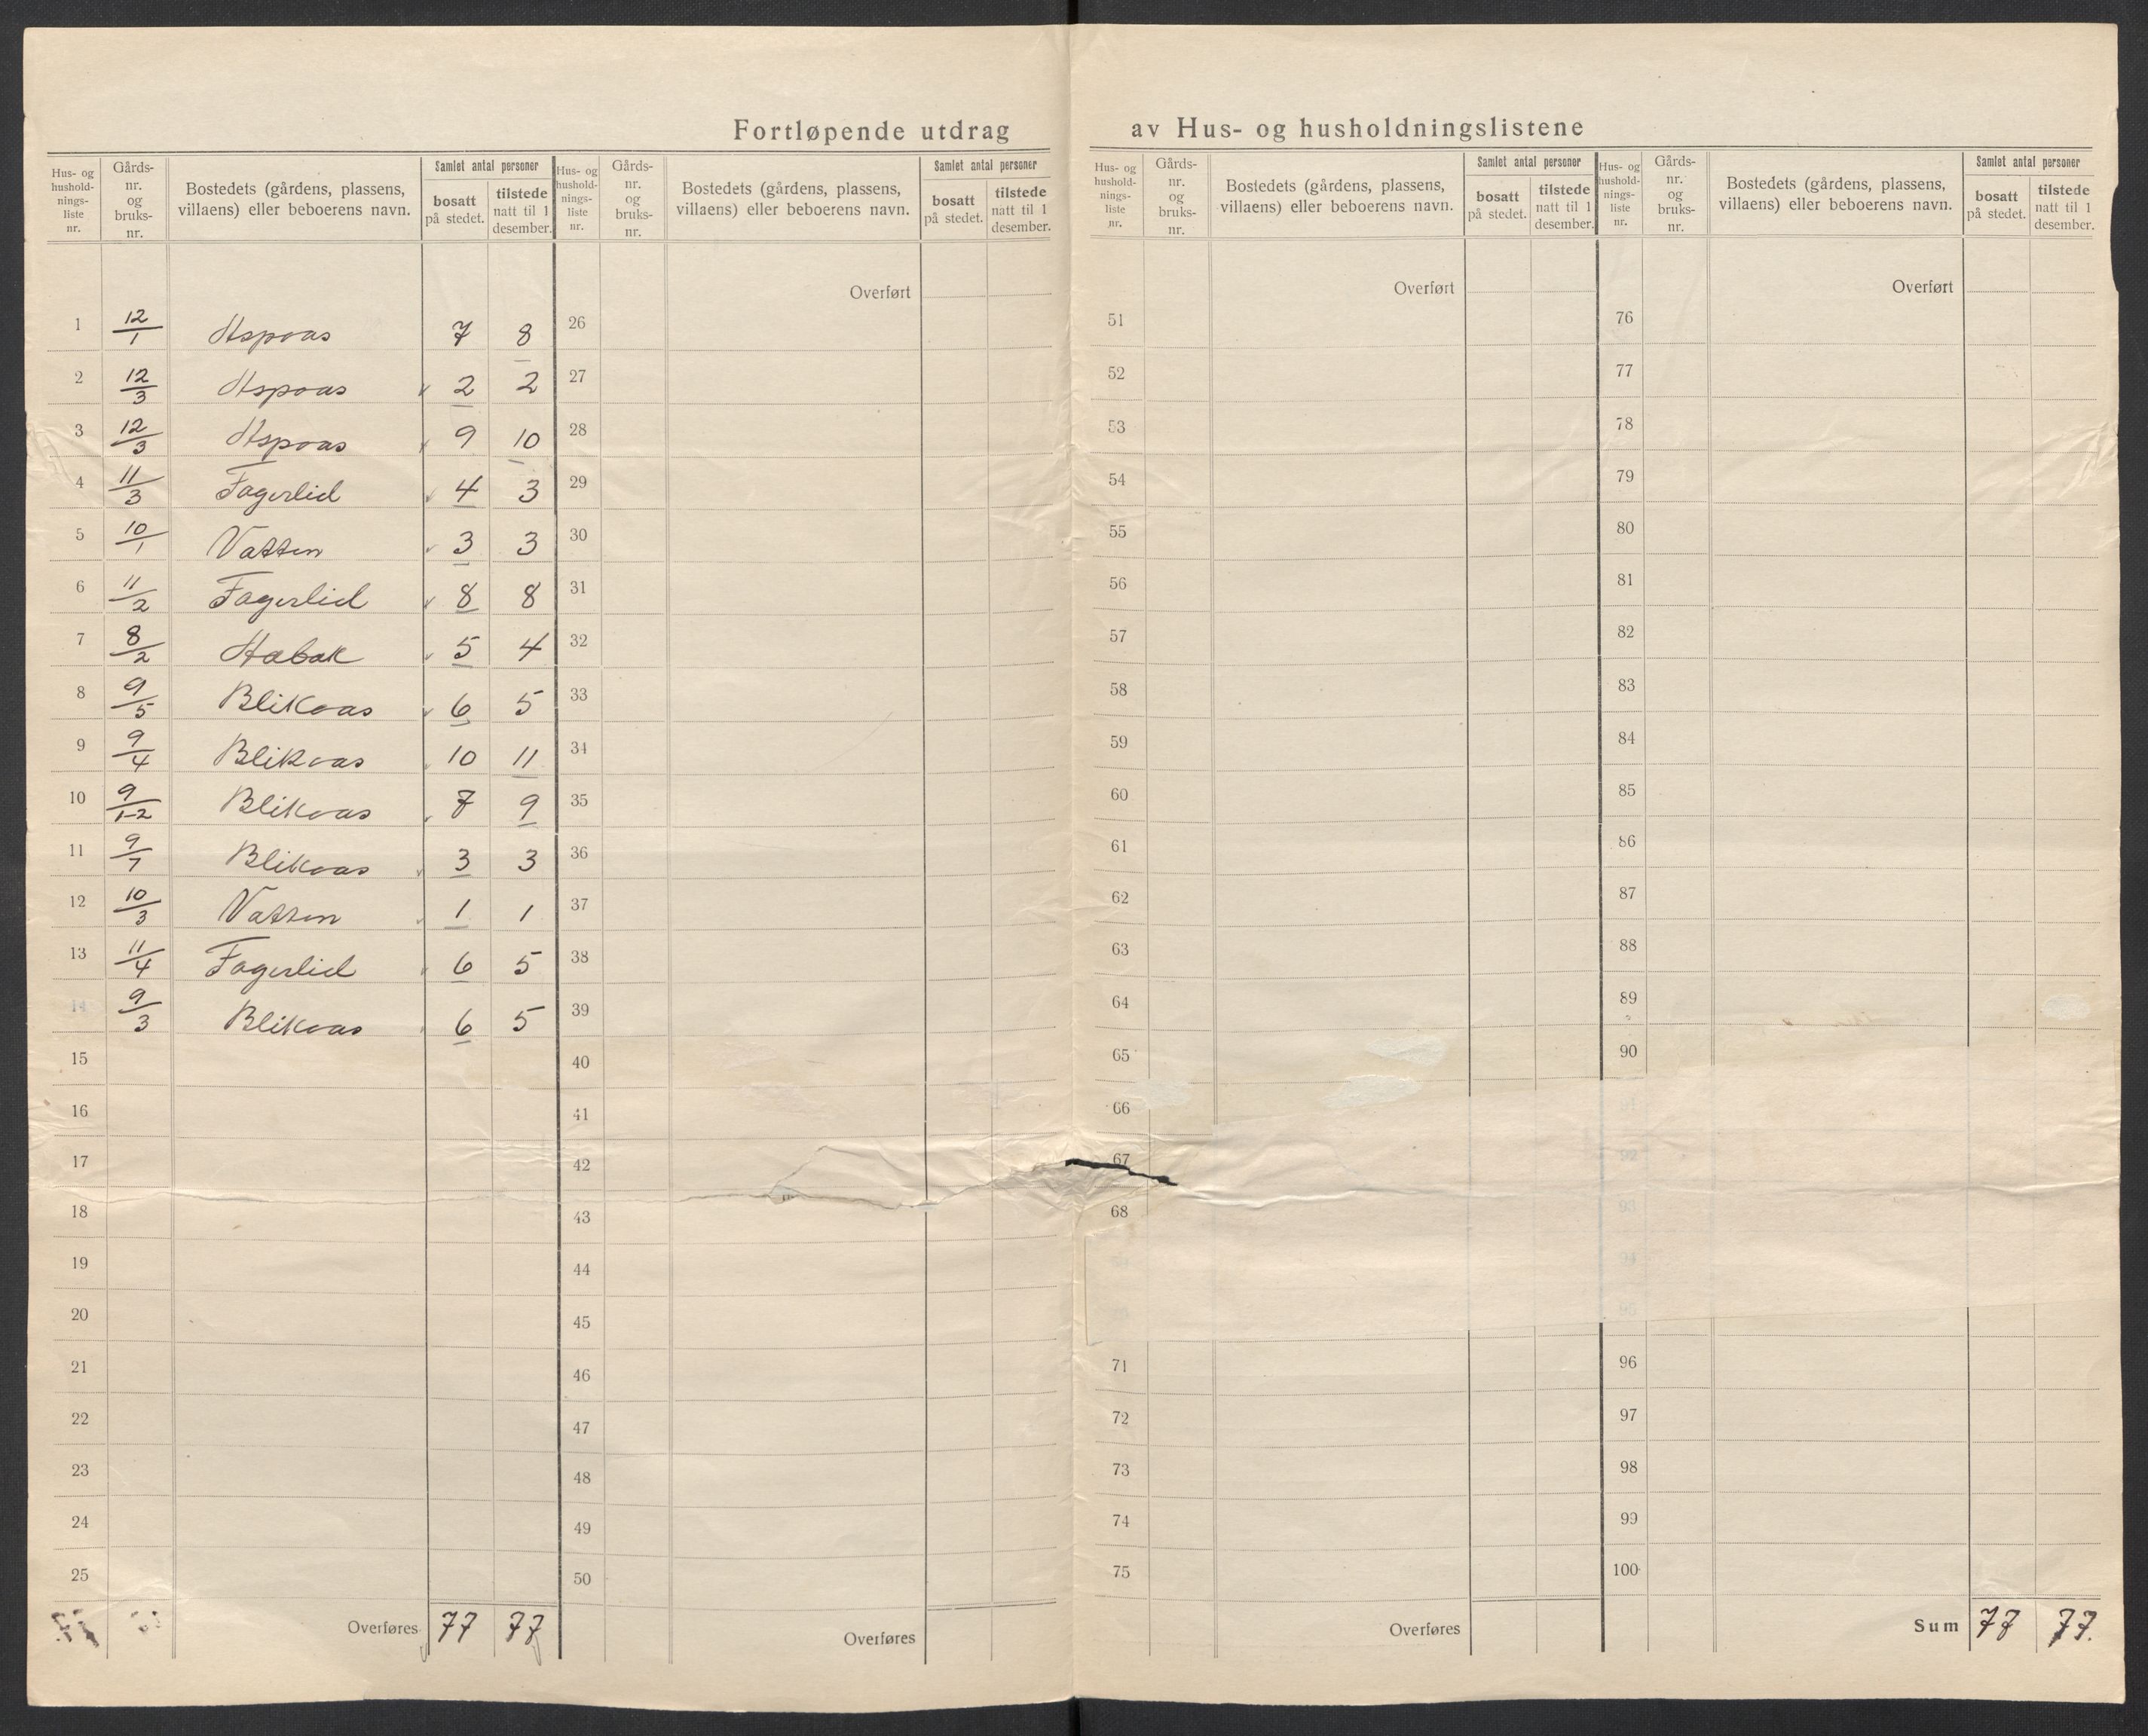 Fortløpende utdrag av Hus- og husholdningslistene
Hus- og hushold- nings- liste nr. | Gårds- nr. og bruks- nr. | Bostedets (gårdens, plassens, villaens) eller beboerens navn. | Samlet antal personer | bosatt på stedet. | tilstede natt til 1 desember.
Hus- og hushold- nings- liste nr. | Gårds- nr. og bruks- nr. | Bostedets (gårdens, plassens, villaens) eller beboerens navn. | Samlet antal personer | bosatt på stedet. | tilstede natt til 1 desember.
Hus- og hushold- nings- liste nr. | Gårds- nr. og bruks- nr. | Bostedets (gårdens, plassens, villaens) eller beboerens navn. | Samlet antal personer | bosatt på stedet. | tilstede natt til 1 desember.
Hus- og hushold- nings- liste nr. | Gårds- nr. og bruks- nr. | Bostedets (gårdens, plassens, villaens) eller beboerens navn. | Samlet antal personer | bosatt på stedet. | tilstede natt til 1 desember.
1 12/1 Aspaas 7 8
2 12/3 Aspaas 2 2
3 12/3 Aspaas 9 10
4 11/3 Fagerlid 4 3
5 10/1 Vatten 3 3
6 11/2 Fagerlid 8 8
7 8/2 5 4
8 9/5 Blikaas 6 5
9 9/4 Blikaas 10 11
10 9/1-2 Blikaas 7 9
11 9/7 Blikaas 3 3
12 10/3 Vatten 1 1
13 11/4 Fagerlid 6 5
14 9/3 Blikaas 6 5
15
16
17
18
19
20
21
22
23
24
25
Overføres 77 77
Overført
26
27
28
29
30
31
32
33
34
35
36
37
38
39
40
41
42
43
44
45
46
47
48
49
50
Overføres
Overført
51
52
53
54
55
56
57
58
59
60
61
62
63
64
65
66
67
68
71
72
73
74
75
Overføres
Overført
76
77
78
79
80
81
82
83
84
85
86
87
88
89
90
91
92
93
94
95
96
97
98
99
100
Sum 77 77.